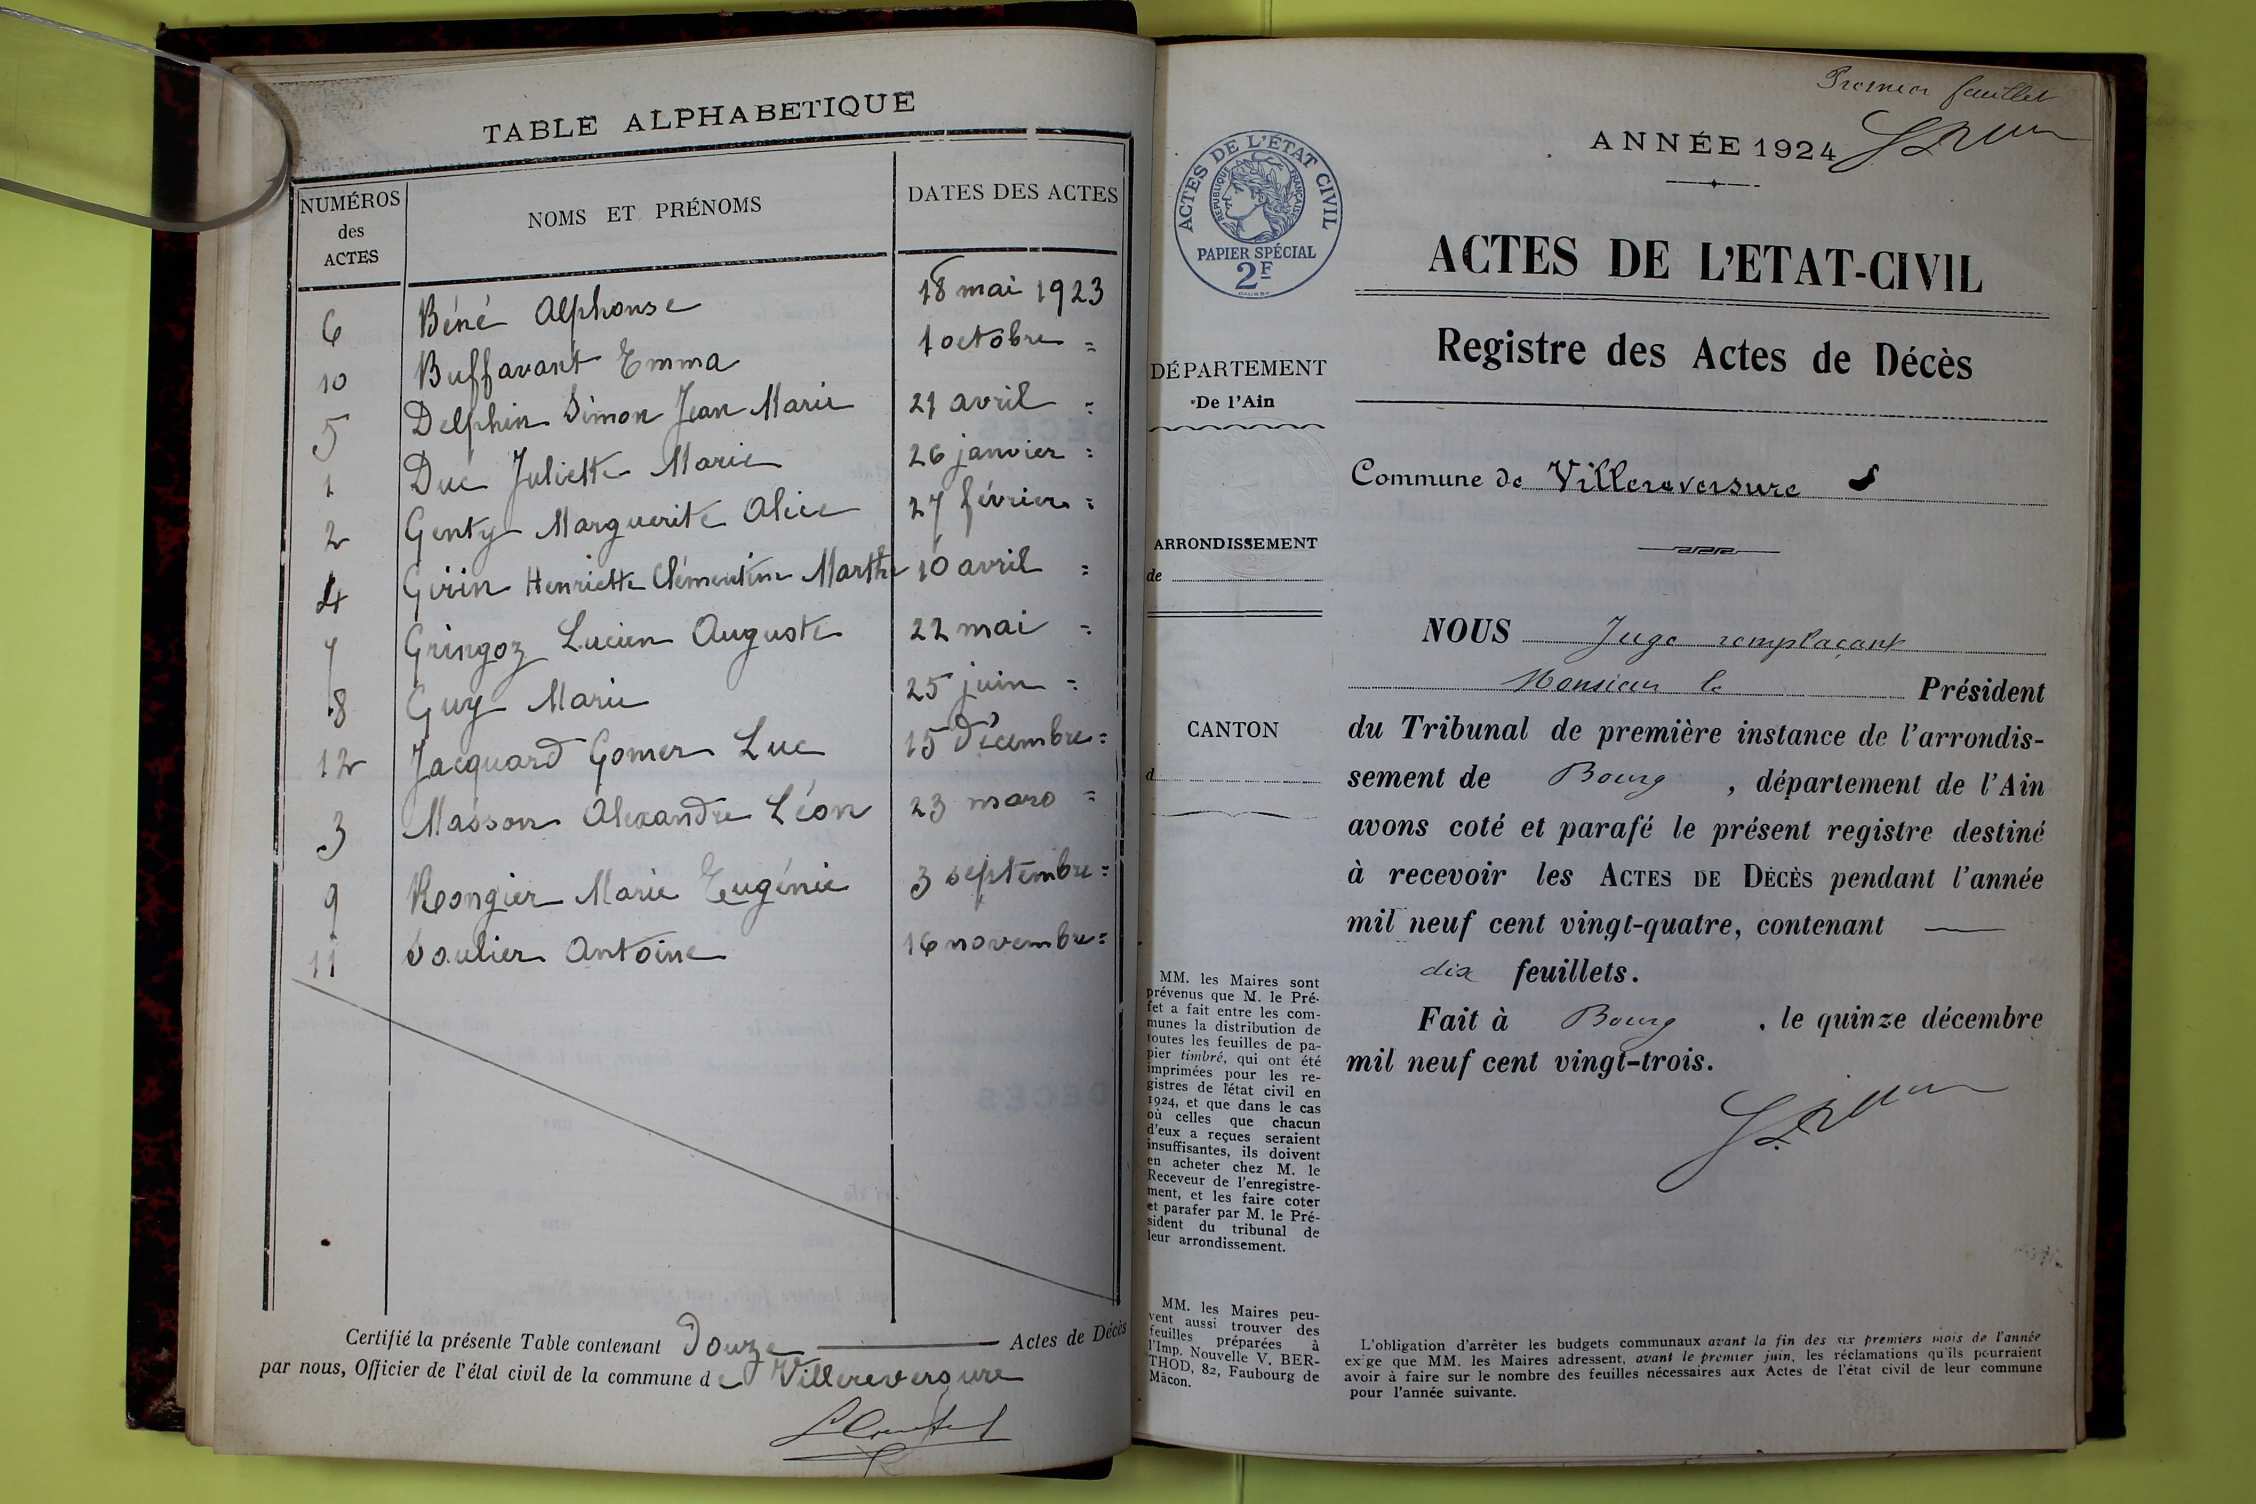 TABLE ALPHABETIQUE
NUMÉROS des ACTES NOMS ET PRÉNOMS DATES DES ACTES
6 Béné Alphonse 18 mai 1923
10 Buffavant Emma 1 octobre =
5 Delphin Simon Jean Marie 21 avril =
1 Duc Juliette Marie 26 janvier =
2 Genty Marguerite Alice 27 février =
4 Girin Henriette Clémentine Marthe 10 avril =
7 Gringoz Lucien Auguste 22 mai =
8 Guy Marie 25 juin =
12 Jacquard Gomer Luc 15 Décembre =
3 Masson Alexandre Léon 23 mars =
9 Rongier Marie Eugénie 3 septembre =
11 Soulier Antoine 16 novembre =
Certifié la présente Table contenant Douze Actes de Décès
par nous, Officier de l'état civil de la commune de Villereversure
Premier feuillet
ANNÉE 1924
ACTES DE L'ÉTAT CIVIL
RÉPUBLIQUE FRANÇAISE
PAPIER SPÉCIAL
2F
ACTES DE L'ETAT-CIVIL
Registre des Actes de Décès
DÉPARTEMENT
De l'Ain
Commune de Villereversure
ARRONDISSEMENT
de
CANTON
d
NOUS Juge remplaçant
Monsieur le Président
du Tribunal de première instance de l'arrondis-
sement de Bourg, département de l'Ain
avons coté et parafé le présent registre destiné
à recevoir les ACTES DE DÉCÈS pendant l'année
mil neuf cent vingt-quatre, contenant
dix feuillets.
Fait à Bourg, le quinze décembre
mil neuf cent vingt-trois.
MM. les Maires sont
prévenus que M. le Pré-
fet a fait entre les com-
munes la distribution de
toutes les feuilles de pa-
pier timbré, qui ont été
imprimées pour les re-
gistres de l'état civil en
1924, et que dans le cas
où celles que chacun
d'eux a reçues seraient
insuffisantes, ils doivent
en acheter chez M. le
Receveur de l'enregistre-
ment, et les faire coter
et parafer par M. le Pré-
sident du tribunal de
leur arrondissement.
MM. les Maires peu-
vent aussi trouver des
feuilles préparées à
l'Imp. Nouvelle V. BER-
THOD, 82, Faubourg de
Mâcon.
L'obligation d'arrêter les budgets communaux avant la fin des six premiers mois de l'année
exige que MM. les Maires adressent, avant le premier juin, les réclamations qu'ils pourraient
avoir à faire sur le nombre des feuilles nécessaires aux Actes de l'état civil de leur commune
pour l'année suivante.